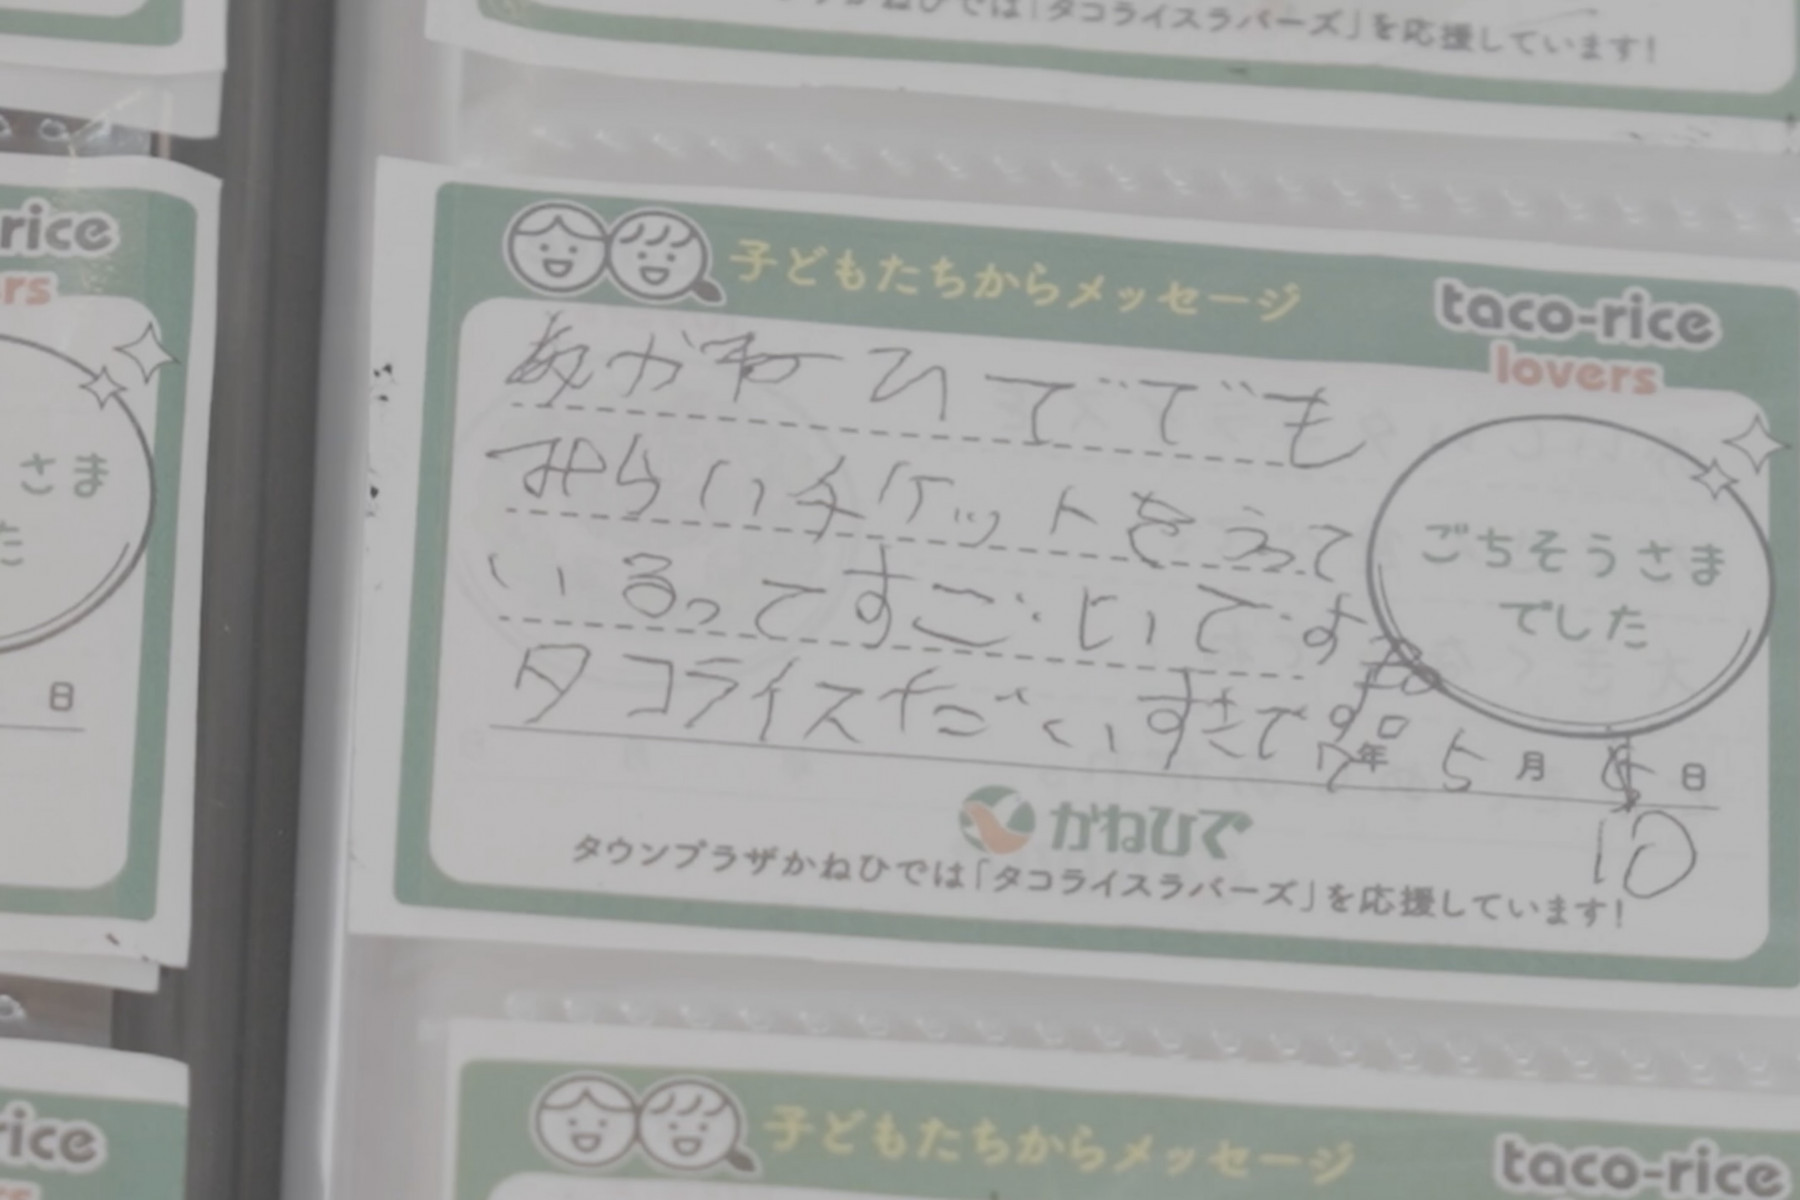 かねひでは「タコライスラバーズ」を応援しています!
rice
rs
さま
た
日
子どもたちからメッセージ
taco-rice
lovers
あかねひででも
みらいチケットをうって
いるってすごいとです
タコライスだいすきです。
ごちそうさま
でした
7年 5月 日
10
かねひで
タウンプラザかねひでは「タコライスラバーズ」を応援しています!
rice
子どもたちからメッセージ
taco-rice